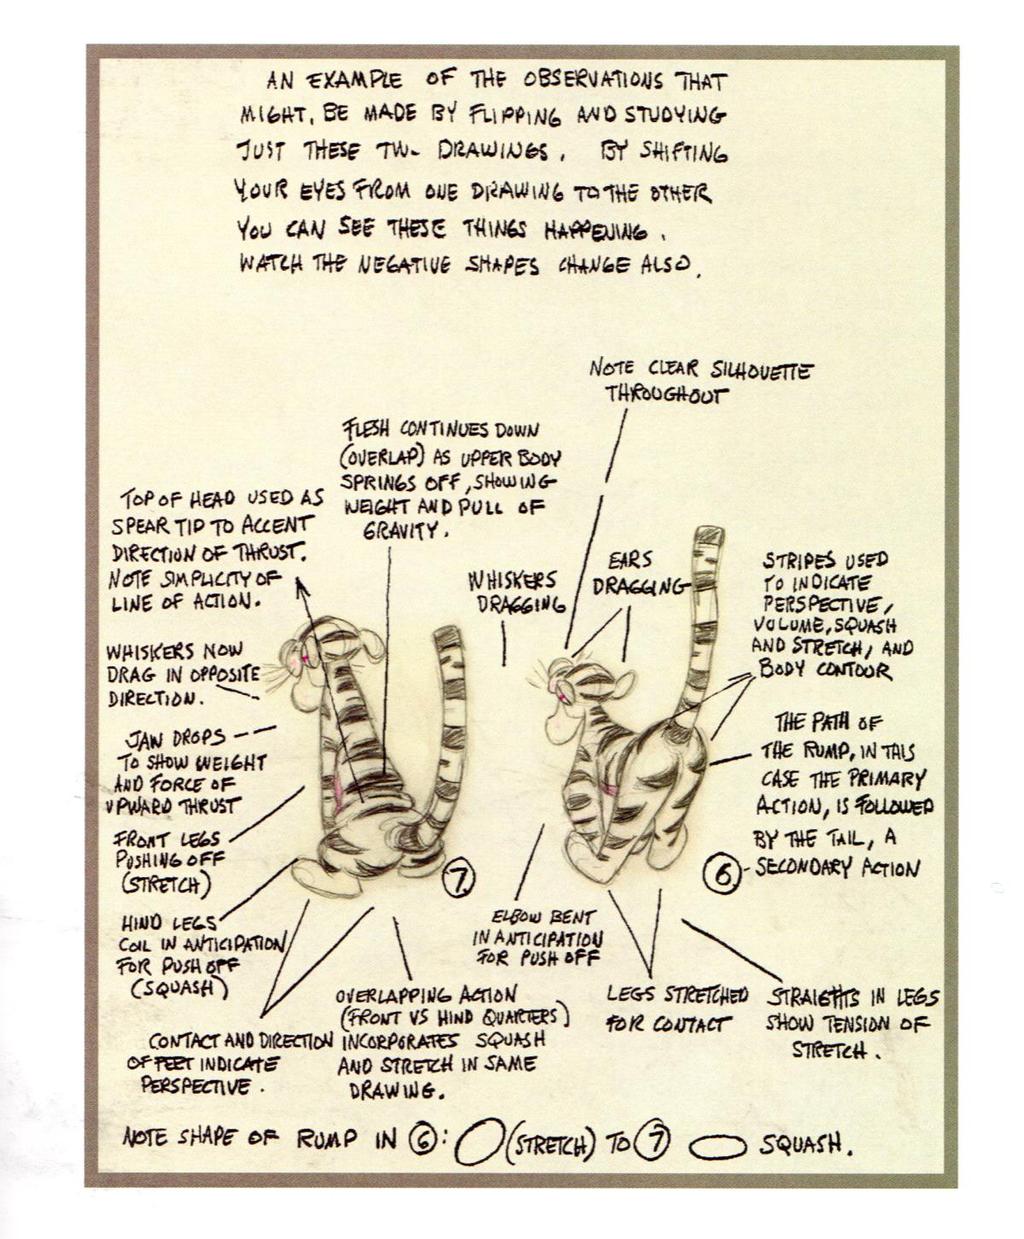 AN EXAMPLE OF THE OBSERVATIONS THAT
MIGHT, BE MADE BY FLIPPING AND STUDYING
JUST THESE TWO DRAWINGS. BY SHIFTING
YOUR EYES FROM ONE DRAWING TO THE OTHER
YOU CAN SEE THESE THINGS HAPPENING.
WATCH THE NEGATIVE SHAPES CHANGE ALSO.
NOTE CLEAR SILHOUETTE
THROUGHOUT
FLESH CONTINUES DOWN
(OVERLAP) AS UPPER BODY
SPRINGS OFF, SHOWING
WEIGHT AND PULL OF
GRAVITY.
TOP OF HEAD USED AS
SPEAR TIP TO ACCENT
DIRECTION OF THRUST.
NOTE SIMPLICITY OF
LINE OF ACTION.
WHISKERS
DRAGGING
EARS
DRAGGING
STRIPES USED
TO INDICATE
PERSPECTIVE,
VOLUME, SQUASH
AND STRETCH, AND
BODY CONTOUR
WHISKERS NOW
DRAG IN OPPOSITE
DIRECTION.
JAW DROPS
TO SHOW WEIGHT
AND FORCE OF
UPWARD THRUST
THE PATH OF
THE RUMP, IN THIS
CASE THE PRIMARY
ACTION, IS FOLLOWED
BY THE TAIL, A
SECONDARY ACTION
FRONT LEGS
PUSHING OFF
(STRETCH)
7
6
HIND LEGS
COIL IN ANTICIPATION
FOR PUSH OFF
(SQUASH)
ELBOW BENT
IN ANTICIPATION
FOR PUSH OFF
CONTACT AND DIRECTION
OF FEET INDICATE
PERSPECTIVE.
OVERLAPPING ACTION
(FRONT VS HIND QUARTERS)
INCORPORATES SQUASH
AND STRETCH IN SAME
DRAWING.
LEGS STRETCHED
FOR CONTACT
STRAIGHTS IN LEGS
SHOW TENSION OF
STRETCH.
NOTE SHAPE OF RUMP IN 6: (STRETCH) TO 7 SQUASH.